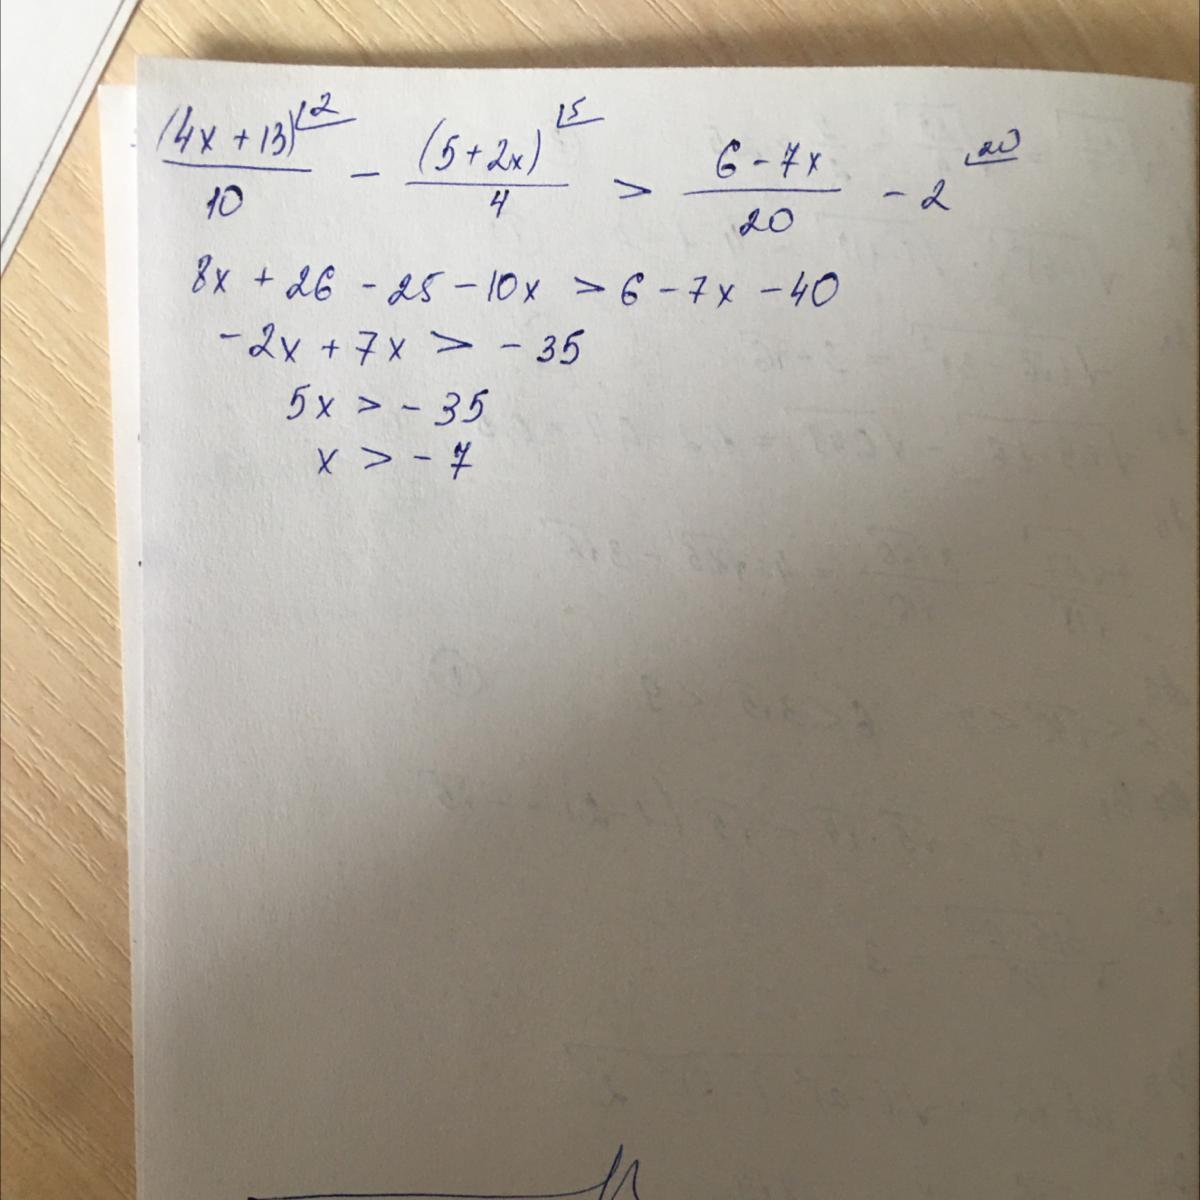 (4x + 13)⌊2 / 10 - (5 + 2x)⌊5 / 4 > 6 - 7x / 20 - 2⌊20
8x + 26 - 25 - 10x > 6 - 7x - 40
- 2x + 7x > - 35
5x > - 35
x > - 7